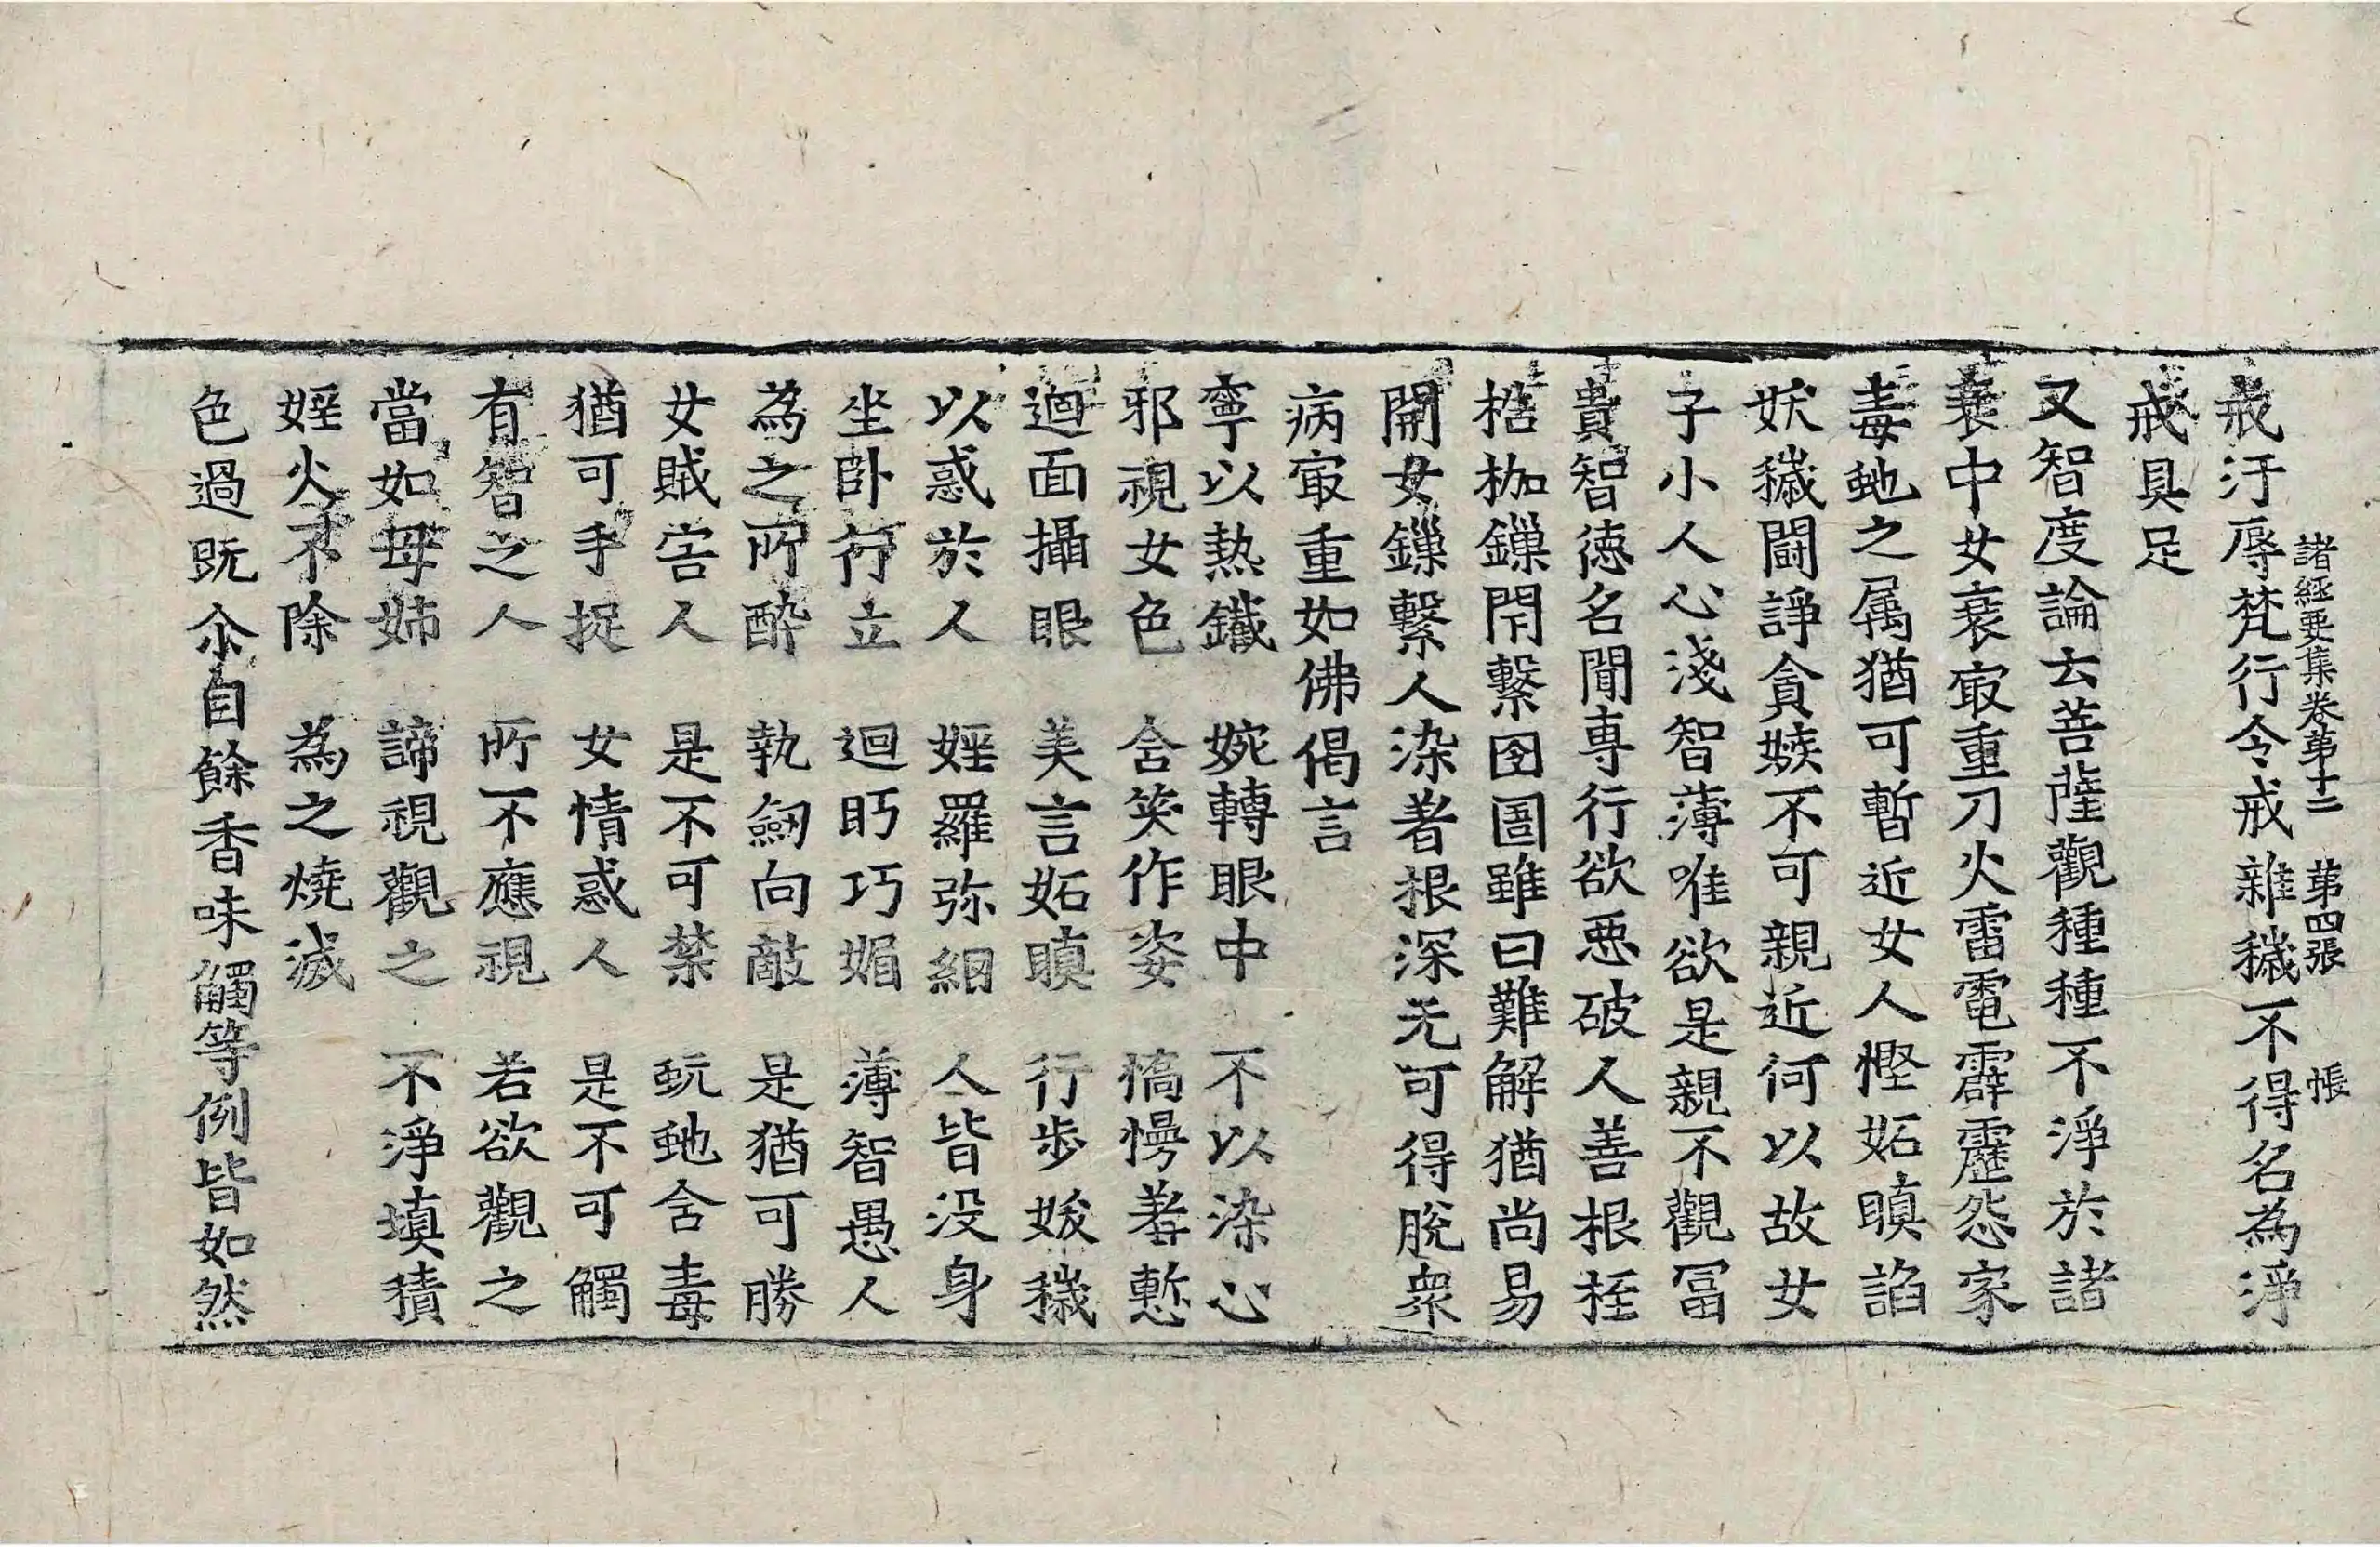 諸經要集卷第十二 第四張 帳
戒汙辱梵行令戒雜穢不得名為淨
戒具足
又智度論云菩薩觀種種不淨於諸
衰中女衰㝡重刀火雷電霹靂怨家
毒虵之属猶可暫近女人慳妬瞋諂
妖穢鬪諍貪嫉不可親近何以故女
子小人心淺智薄唯欲是親不觀冨
貴智徳名聞專行欲惡破人善根桎
梏枷鏁閇繫囹圄雖曰難解猶尚易
開女鏁繫人染著根深无可得脫衆
病㝡重如佛偈言
寧以熱鐵 婉轉眼中 不以染心
邪視女色 含笑作姿 憍慢羞慙
迴面攝眼 美言妬瞋 行步妖穢
以惑於人 婬羅弥網 人皆没身
坐卧行立 迴眄巧媚 薄智愚人
為之所醉 執劒向敵 是猶可勝
女賊害人 是不可禁 蚖虵含毒
猶可手捉 女情惑人 是不可觸
有智之人 所不應視 若欲觀之
當如母姉 諦視觀之 不淨填積
婬火不除 為之燒滅
色過既尒自餘香味觸等例皆如然